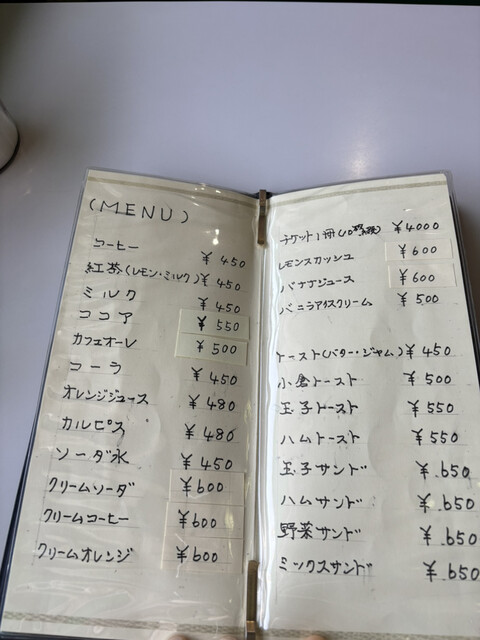 (MENU)
コーヒー ¥450
紅茶(レモン・ミルク) ¥450
ミルク ¥450
ココア ¥550
カフェオーレ ¥500
コーラ ¥450
オレンジジュース ¥480
カルピス ¥480
ソーダ水 ¥450
クリームソーダ ¥600
クリームコーヒー ¥600
クリームオレンジ ¥600
チケット1冊(10枚綴) ¥4000
レモンスカッシュ ¥600
バナナジュース ¥600
バニラアイスクリーム ¥500
トースト(バター・ジャム) ¥450
小倉トースト ¥500
玉子トースト ¥550
ハムトースト ¥550
玉子サンド ¥650
ハムサンド ¥650
野菜サンド ¥650
ミックスサンド ¥650